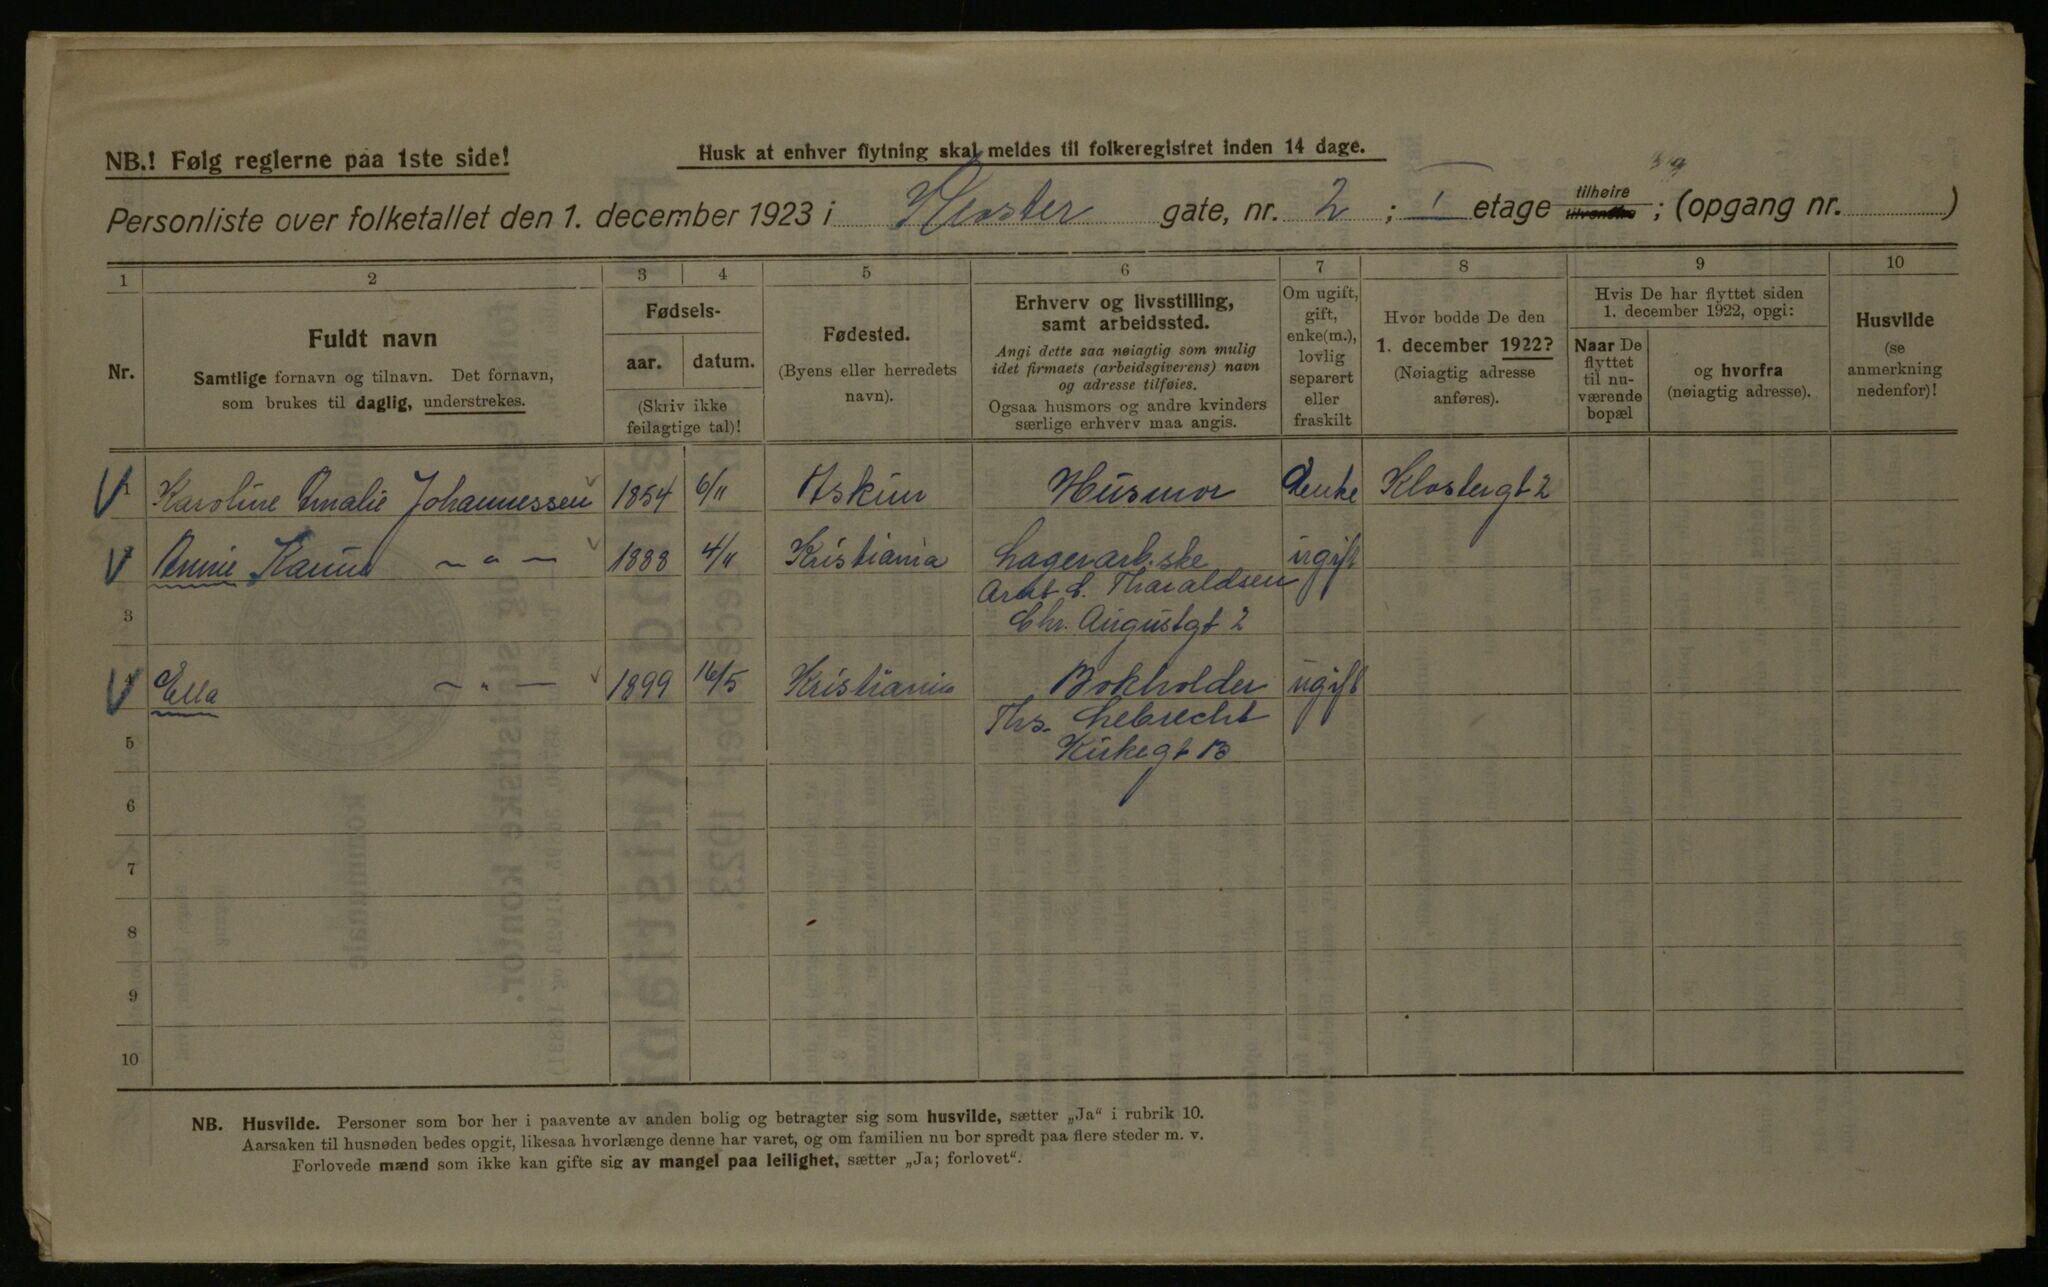 NB.! Følg reglerne paa 1ste side!
Husk at enhver flytning skal meldes til folkeregistret inden 14 dage.
Personliste over folketallet den 1. december 1923 i Kloster gate, nr. 2 ; I etage tilhøire tilvenstre ; (opgang nr. )
1 2 3 4 5 6 7 8 9 10
Nr.
Fuldt navn
Samtlige fornavn og tilnavn. Det fornavn,
som brukes til daglig, understrekes.
Fødsels-
aar. datum.
(Skriv ikke
feilagtige tal)!
Fødested.
(Byens eller herredets
navn).
Erhverv og livsstilling,
samt arbeidssted.
Angi dette saa nøiagtig som mulig
idet firmaets (arbeidsgiverens) navn
og adresse tilføies.
Ogsaa husmors og andre kvinders
særlige erhverv maa angis.
Om ugift,
gift,
enke(m.),
lovlig
separert
eller
fraskilt
Hvor bodde De den
1. december 1922?
(Nøiagtig adresse
anføres).
Hvis De har flyttet siden
1. december 1922, opgi:
Naar De
flyttet
til nu-
værende
bopæl
og hvorfra
(nøiagtig adresse).
Husvilde
(se
anmerkning
nedenfor)!
1 Karoline Amalie Johannessen 1854 6/11 Askim Husmor enke Klostergt 2
Annie - " - 1888 4/11 Kristiania Lagerarb.ske ugift
3 C. Tharaldsen
Chr. Augustgt 2
4 Ella - " - 1899 16/5 Kristiania Bokholder ugift
Ths. Lebrecht
5 Kirkegt
6
7
8
9
10
NB. Husvilde. Personer som bor her i paavente av anden bolig og betragter sig som husvilde, sætter „Ja“ i rubrik 10.
Aarsaken til husnøden bedes opgit, likesaa hvorlænge denne har varet, og om familien nu bor spredt paa flere steder m. v.
Forlovede mænd som ikke kan gifte sig av mangel paa leilighet, sætter „Ja; forlovet“.